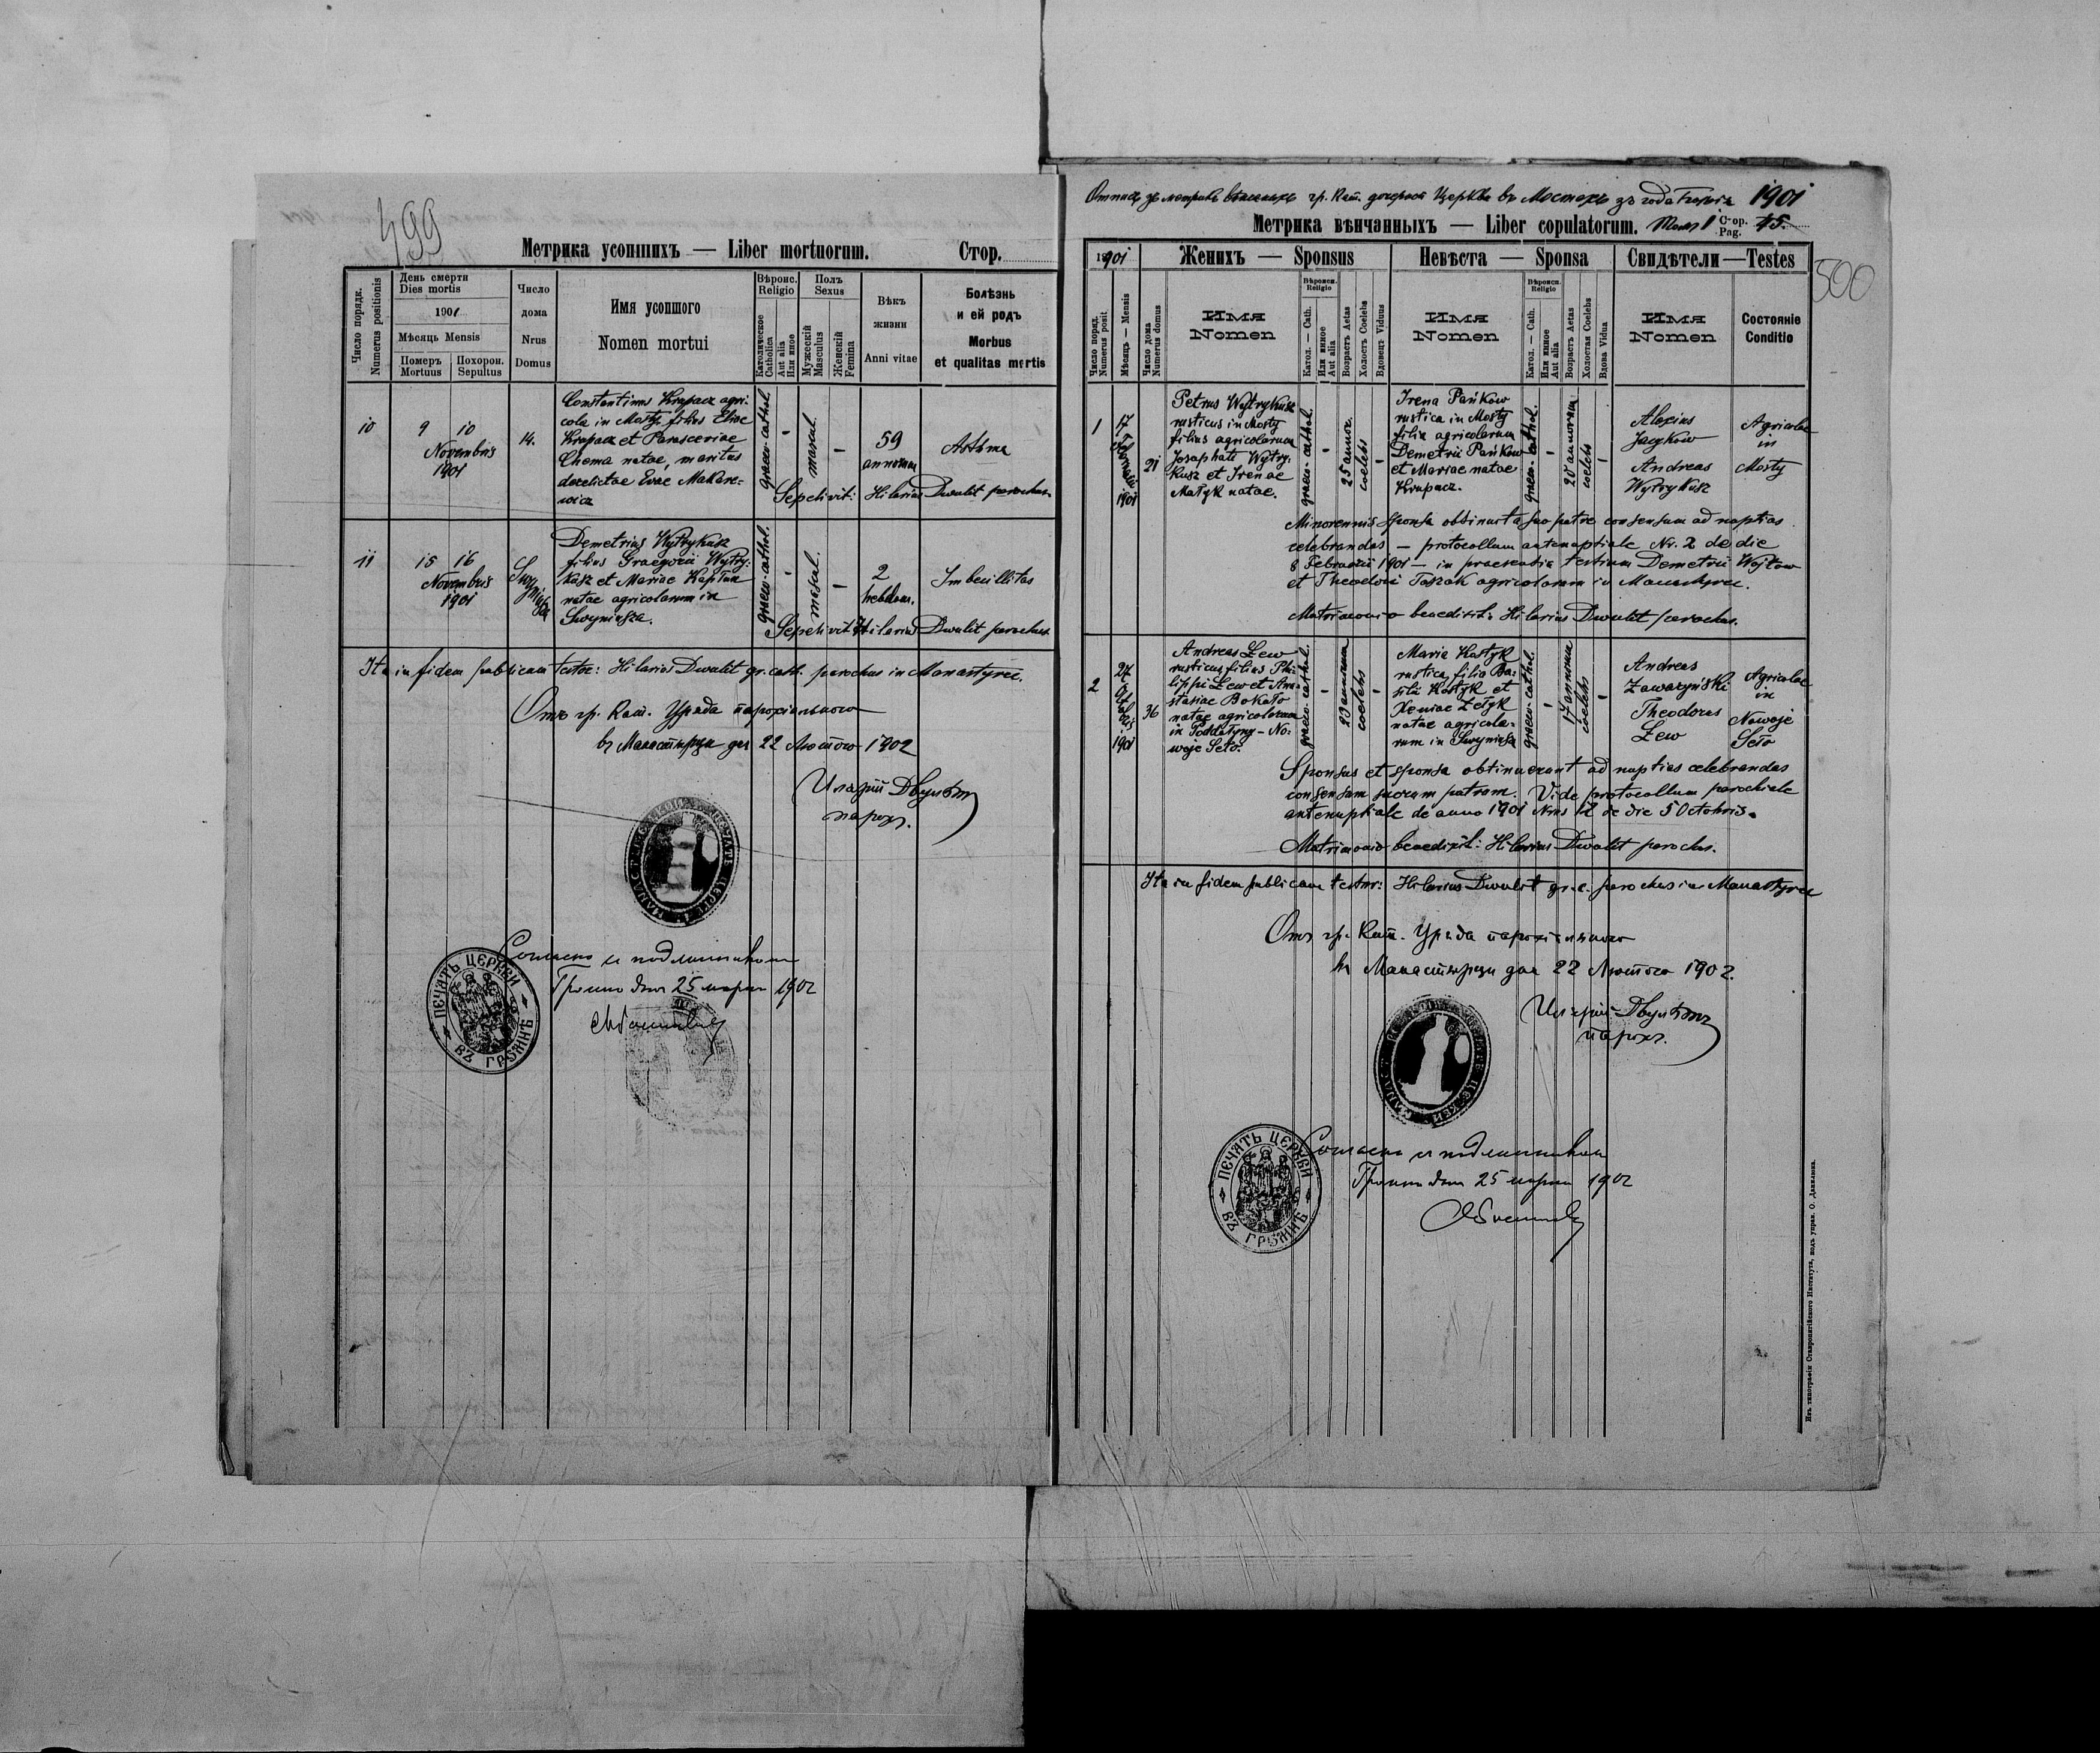 499
Метрика усопшихъ — Liber mortuorum. Стор.
Число порядк.
Numerus positionis
День смерти
Dies mortis
1901
Мѣсяць Mensis
Померъ
Mortuus
Похорон.
Sepultus
Число
дома
Nrus
Domus
Имя усопшого
Nomen mortui
Вѣроис.
Religio
Католическое
Catholica
Aut alia
Или иное
Полъ
Sexus
Мужескій
Masculus
Женскій
Femina
Вѣкъ
жизни
Anni vitae
Болѣзнь
и ей родъ
Morbus
et qualitas mortis
10
9 10
Novembris
1901
14.
Constantinus Krapacz agri-
cola in Mosty, filius Eliae
Krapacz et Parasceviae
Chema natae, maritus
derelictae Evae Makare-
wicz
graeco-cathol.
-
mascul.
-
59
annorum
Asthma
Sepelivit: Hilarius Dwulit parochus.
11
15 16
Novembris
1901
Demetrius Wytrykusz
filius Graegorii Wytry-
kusz et Mariae Kapłan
natae agricolarum in
Swyniusza.
graeco-cathol.
-
mascul.
-
2
hebdom.
Imbecillitas
Sepelivit Hilarius Dwulit parochus.
Ita in fidem publicam testor: Hilarius Dwulit gr. cath. parochus in Manastyrec.
Отъ гр. Кат. Уряда парохіяльного
въ Манастырци дня 22 Лютого 1902
Иларій Двулѣтъ
парохъ.
Согласно с подлинником
дня 25 марта 1902
ПЕЧАТЬ ЦЕРКВИ
ВЪ
Отпись зъ метрикъ вѣнчаныхъ гр. Кат. дочерной Церкви въ Мостахъ зъ года 1901
Метрика вѣнчанныхъ — Liber copulatorum. Томъ I Стор.
Pag. 45.
500
1901
Женихъ — Sponsus
Невѣста — Sponsa
Свидѣтели — Testes
Число поряд.
Numerus posit
Мѣсяцъ — Mensis
Число дома
Numerus domus
Имя
Nomen
Вѣроисп.
Religio
Катол. — Cath.
Или иное
Aut alia
Возрастъ Aetas
Холостъ Coelebs
Вдовецъ Viduus
Имя
Nomen
Вѣроисп.
Religio
Катол. — Cath.
Или иное
Aut alia
Возрастъ Aetas
Холостая Coelebs
Вдова Vidua
Имя
Nomen
Состояніе
Conditio
1
17
Februarii
1901
21
Petrus Wytrykusz
rusticus in Mosty
filius agricolarum
Josaphati Wytry-
kusz et Irenae
Małyk natae.
graeco-cathol.
-
25 annor.
coelebs
-
Irena Pańkow
rustica in Mosty
filia agricolarum
Demetrii Pańkow
et Mariae natae
Krapacz.
graeco-cathol.
-
20 annorum
coelebs
-
Alexius
Jacykow
Andreas
Wytrykusz
Agricolae
in
Mosty
Minorennis sponsa obtinuit a suo patre consensum ad nuptias
celebrandas — protocollum antenuptiale Nr. 2 de die
8 Februarii 1901 — in praesentia testium Demetrii Wojtow
et Theodori Toszak agricolarum in Manastyrec.
Matrimonio benedixit: Hilarius Dwulit parochus.
2
27
Octobris
1901
36
Andreas Lew
rusticus filius Phi-
lippi Lew et Ana-
stasiae Bokało
natae agricolarum
in Poddałyny - No-
woje Seło.
graeco-cathol.
-
23 annorum
coelebs
-
Maria Kostyk
rustica filia Ba-
silii Kostyk et
Xeniae Letyk
natae agricola-
rum in Swyniusza
graeco-cathol.
-
17 annorum
coelebs
-
Andreas
Zawaryński
Theodorus
Lew
Agricolae
in
Nowoje
Seło
Sponsus et sponsa obtinuerunt ad nuptias celebrandas
consensum suorum patrum. Vide protocollum parochiale
antenuptiale de anno 1901 Nrus 12 de die 5 Octobris.
Matrimonio benedixit: Hilarius Dwulit parochus.
Ita in fidem publicam testor: Hilarius Dwulit gr. c. parochus in Manastyrec
Отъ гр. Кат. Уряда парохіяльного
въ Манастырци дня 22 Лютого 1902.
Иларій Двулѣтъ
парохъ.
Согласно с подлинником
дня 25 марта 1902
ПЕЧАТЬ ЦЕРКВИ
ВЪ
Изъ типографіи Ставропигійского Института, подъ управ. О. Данилюка.